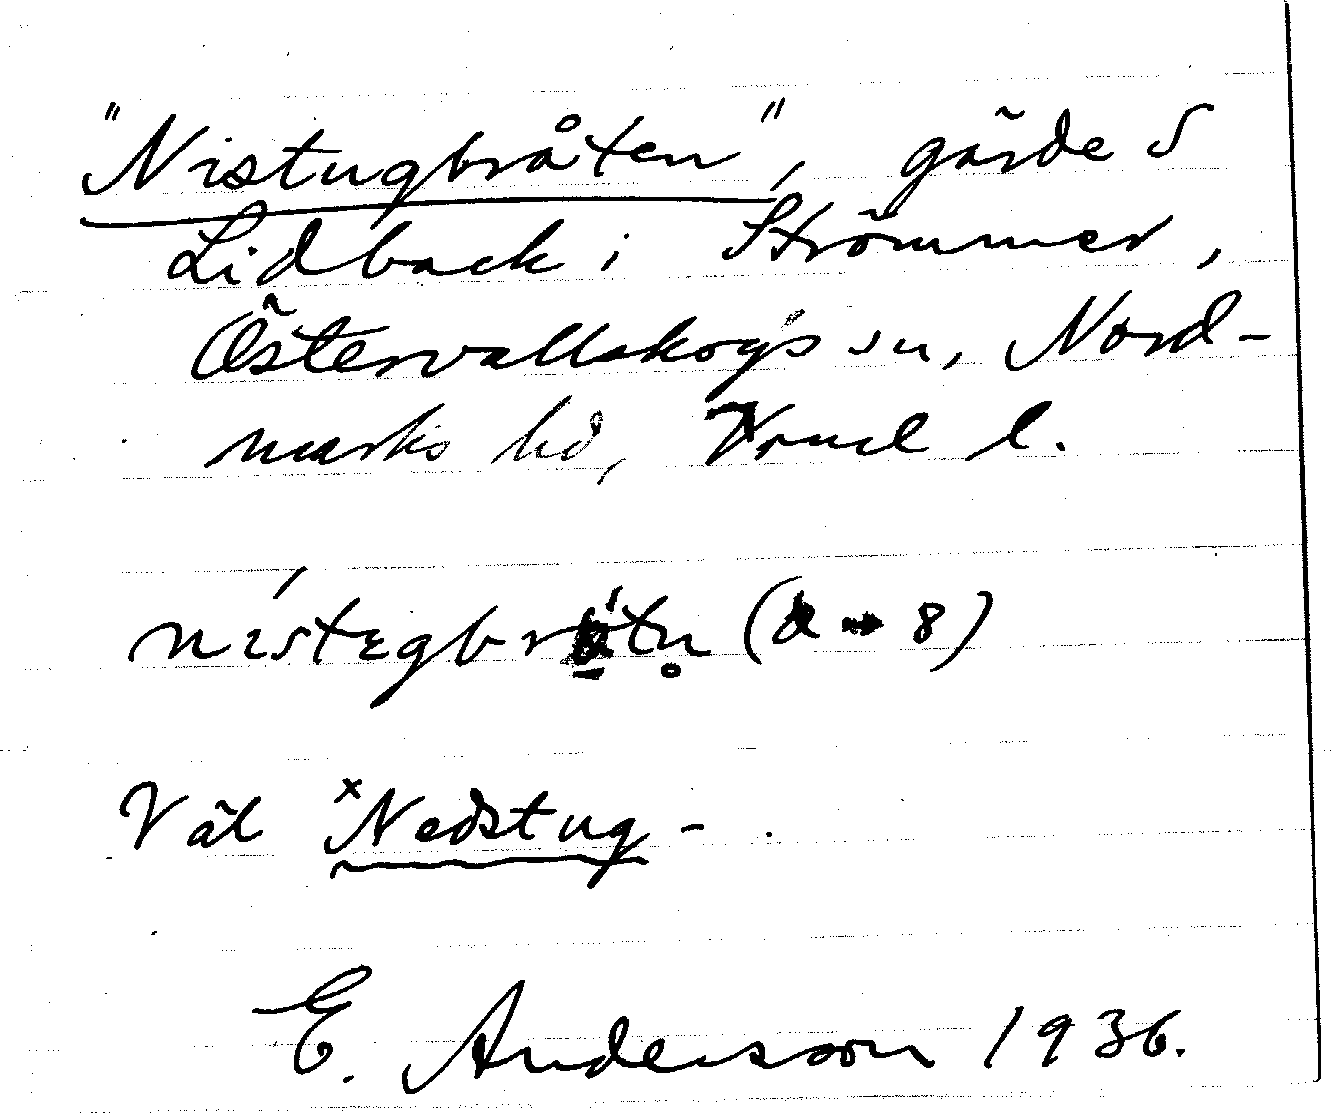 "Nistugbråten", gärde S
Lidback i Strömmer,
Östervallskogs sn, Nord-
marks hd, Vrml l.
Väl ×Nedstug- .
E. Anderson 1936.